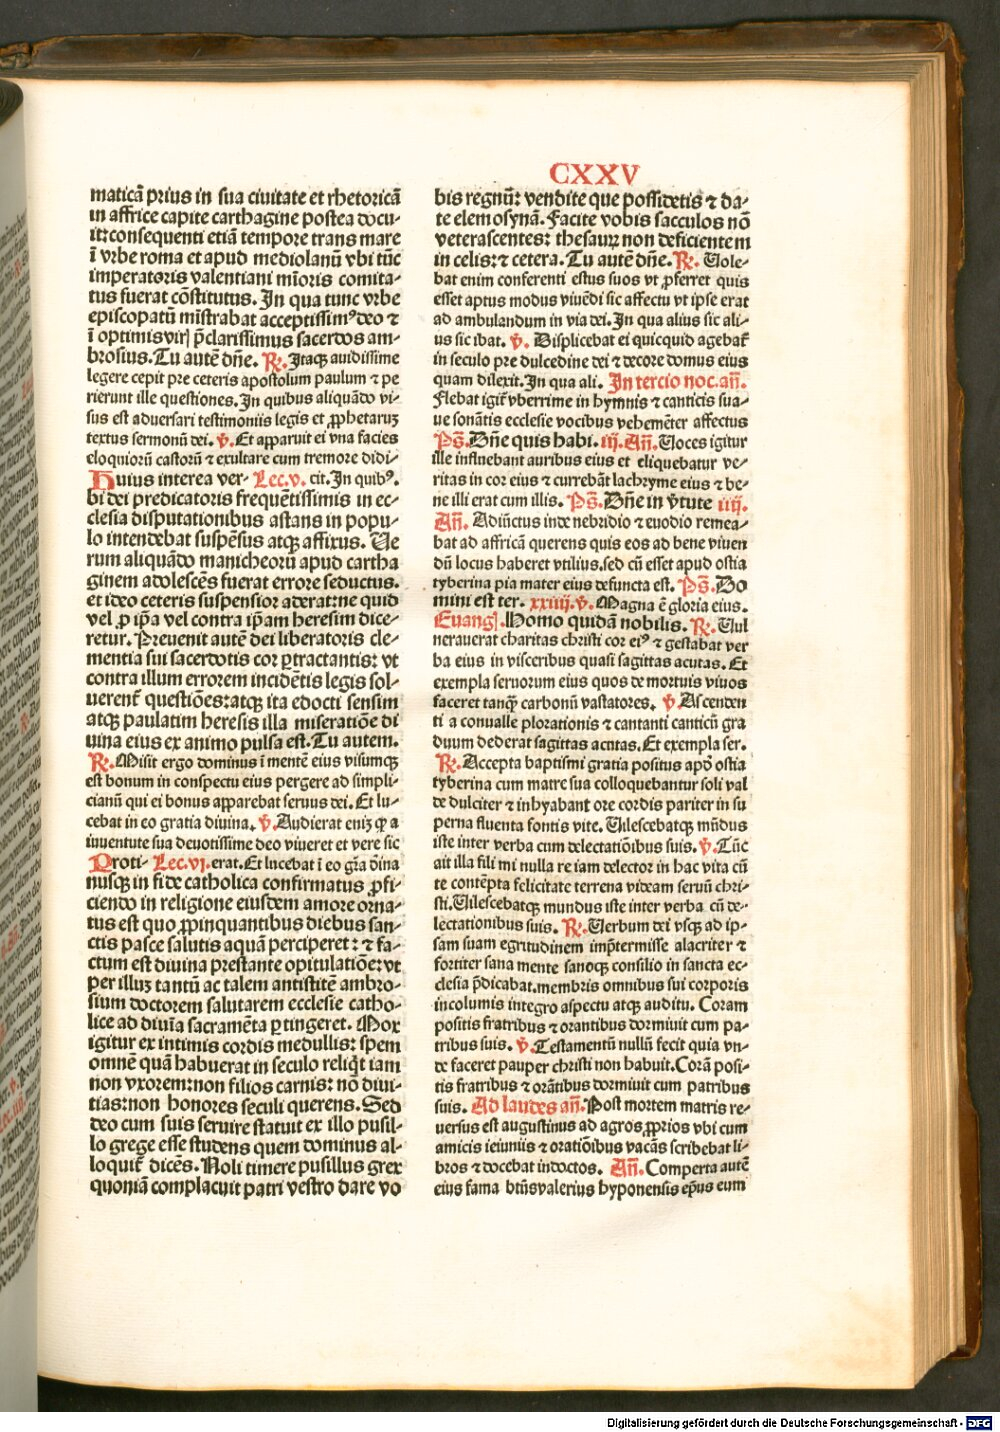 CXXV
maticã prius in sua ciuitate et rhetoricã
in affrice capite carthagine postea docu-
it: consequenti etiã tempore trans mare
ĩ vrbe roma et apud mediolanũ vbi tũc
imperatoris valentiani mĩoris comita-
tus fuerat cõstitutus. In qua tunc vrbe
episcopatũ mĩstrabat acceptissimꝰ deo ⁊
ĩ optimis viꝝ p̃clarissimus sacerdos am-
brosius. Tu autẽ dñe. ℟. Itaqꝫ auidissime
legere cepit pre ceteris apostolum paulum ⁊ pe
rierunt ille questiones. In quibus aliquãdo vi-
sus est aduersari testimoniis legis et ꝓphetaruꝫ
textus sermonũ dei. ℣. Et apparuit ei vna facies
eloquiorũ castorũ ⁊ exultare cum tremore didi-
Huius interea ver- Lec.v. cit. In quibꝰ.
bi dei predicatoris frequẽtissimis in ec-
clesia disputationibus astans in popu-
lo intendebat suspẽsus atqꝫ affixus. Ue
rum aliquãdo manicheorũ apud cartha
ginem adolescẽs fuerat errore seductus.
et ideo ceteris suspensior aderat: ne quid
vel ꝓ ip̃a vel contra ip̃am heresim dice-
retur. Preuenit autẽ dei liberatoris cle-
mentia sui sacerdotis cor ꝑtractantis: vt
contra illum errorem incidẽtis legis sol-
uerent᷑ questiões: atqꝫ ita edocti sensim
atqꝫ paulatim heresis illa miseratiõe di
uina eius ex animo pulsa est. Tu autem.
℟. Misit ergo dominus ĩ mentẽ eius visumqꝫ
est bonum in conspectu eius pergere ad simpli-
cianũ qui ei bonus apparebat seruus dei. Et lu-
cebat in eo gratia diuina. ℣. Audierat eniꝫ ꝙ a
iuuentute sua deuotissime deo viueret et vere sic
Proti- Lec.vj. erat. Et lucebat ĩ eo gr̃a diuina
nusqꝫ in fide catholica confirmatus ꝓfi-
ciendo in religione eiusdem amore orna-
tus est quo ꝓpinquantibus diebus san-
ctis pasce salutis aquã perciperet: ⁊ fa-
ctum est diuina prestante opitulatiõe: vt
per illuꝫ tantũ ac talem antistitẽ ambro-
sium doctorem salutarem ecclesie catho-
lice ad diuĩa sacramẽta ꝑtingeret. Mox
igitur ex intimis cordis medullis: spem
omnẽ quã habuerat in seculo reliq̃t iam
non vxorem: non filios carnis: nõ diui-
tias: non honores seculi querens. Sed
deo cum suis seruire statuit ex illo pusil-
lo grege esse studens quem dominus al-
loquit᷑ dicẽs. Noli timere pusillus grex
quoniã complacuit patri vestro dare vo
bis regnũ: vendite que possidetis ⁊ da-
te elemosynã. Facite vobis sacculos nõ
veterascentes: thesauꝝ non deficientem
in celis: ⁊ cetera. Tu autẽ dñe. ℟. Uole-
bat enim conferenti estus suos vt ꝓferret quis
esset aptus modus viuẽdi sic affectu vt ipse erat
ad ambulandum in via dei. In qua alius sic ali-
us sic ibat. ℣. Displicebat ei quicquid agebat᷑
in seculo pre dulcedine dei ⁊ decore domus eius
quam dilexit. In qua ali. In tercio noc. añ.
Flebat igit᷑ vberrime in hymnis ⁊ canticis sua-
ue sonãtis ecclesie vocibus vehemẽter affectus
Ps̃. Dñe quis habi. iij. Añ. Uoces igitur
ille influebant auribus eius et eliquebatur ve-
ritas in cor eius ⁊ currebãt lachryme eius ⁊ be-
ne illi erat cum illis. Ps̃. Dñe in v̓tute iiij.
Añ. Adiũctus inde nebridio ⁊ euodio remea-
bat ad affricã querens quis eos ad bene viuen
dũ locus haberet vtilius. sed cũ esset apud ostia
tyberina pia mater eius defuncta est. Ps̃. Do
mini est ter. xxiiij. ℣. Magna ẽ gloria eius.
Euangl̃. Homo quidã nobilis. ℟. Uul
nerauerat charitas christi cor eiꝰ ⁊ gestabat ver
ba eius in visceribus quasi sagittas acutas. Et
exempla seruorum eius quos de mortuis viuos
faceret tanqꝫ carbonũ vastatores. ℣. Ascenden
ti a conualle plorationis ⁊ cantanti canticũ gra
duum dederat sagittas acutas. Et exempla ser.
℟. Accepta baptismi gratia positus apđ ostia
tyberina cum matre sua colloquebantur soli val
de dulciter ⁊ inhyabant ore cordis pariter in su
perna fluenta fontis vite. Uilescebatqꝫ mũdus
iste inter verba cum delectatiõibus suis. ℣. Tũc
ait illa fili mi nulla re iam delector in hac vita cũ
te contẽpta felicitate terrena videam seruũ chri-
sti. Uilescebatqꝫ mundus iste inter verba cũ de-
lectationibus suis. ℟. Uerbum dei vsqꝫ ad ip-
sam suam egritudinem imp̃termisse alacriter ⁊
fortiter sana mente sanoqꝫ consilio in sancta ec-
clesia p̃dicabat. membris omnibus sui corporis
incolumis integro aspectu atqꝫ auditu. Coram
positis fratribus ⁊ orantibus dormiuit cum pa-
tribus suis. ℣. Testamentũ nullũ fecit quia vn-
de faceret pauper christi non habuit. Corã posi-
tis fratribus ⁊ orãtibus dormiuit cum patribus
suis. Ad laudes añ. Post mortem matris re-
uersus est augustinus ad agros ꝓprios vbi cum
amicis ieiuniis ⁊ oratiõibus vacãs scribebat li-
bros ⁊ docebat indoctos. Añ. Comperta autẽ
eius fama btũs valerius hyponensis ep̃us eum
Digitalisierung gefördert durch die Deutsche Forschungsgemeinschaft - DFG